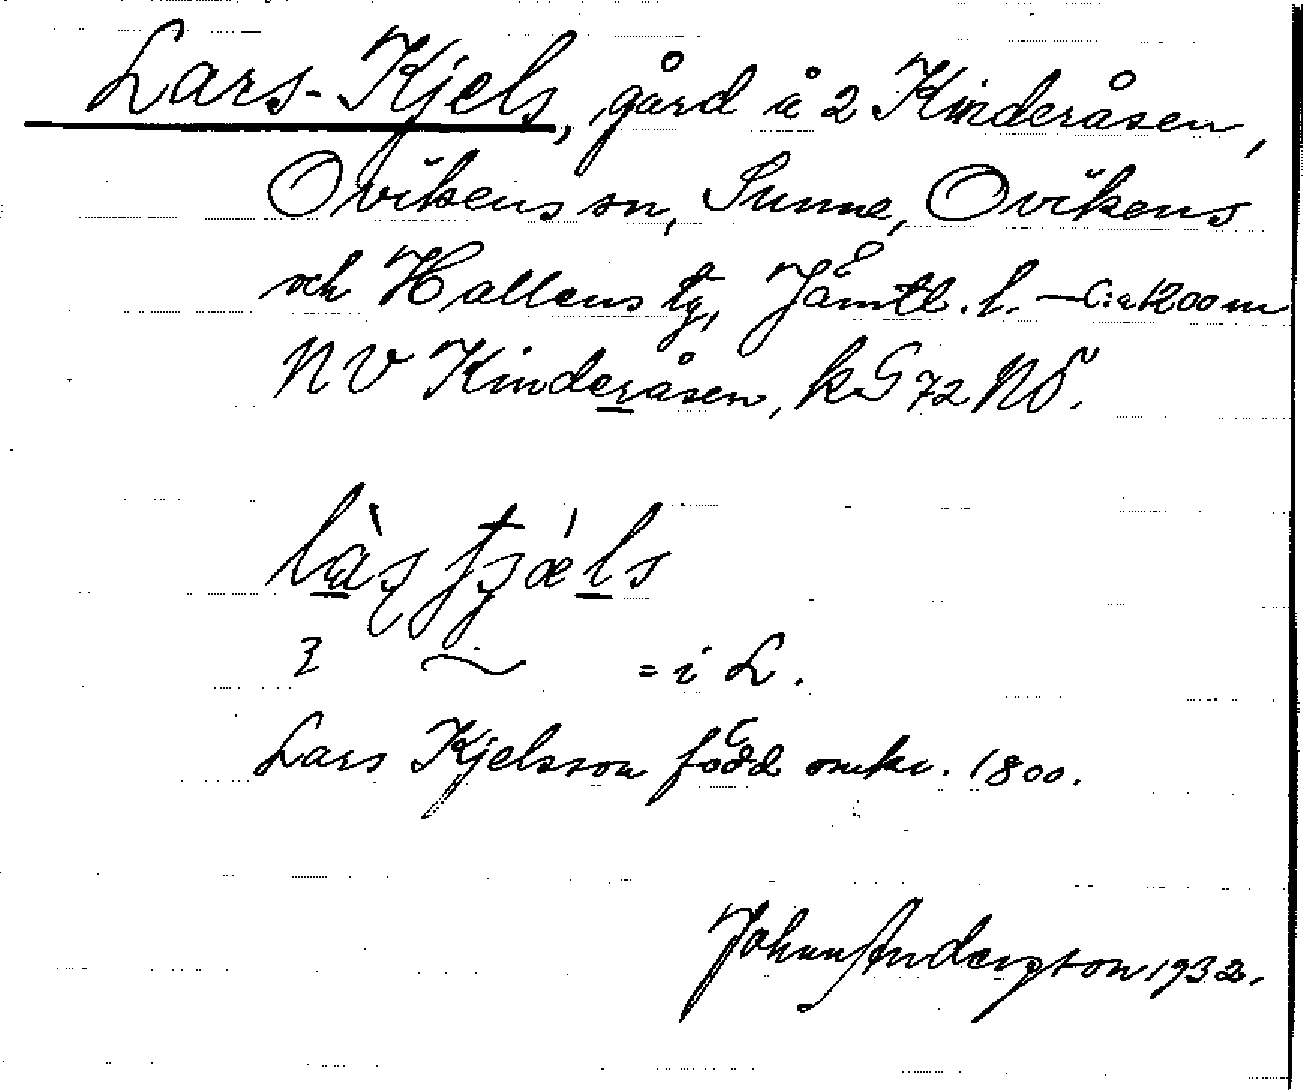 Lars-Kjels, gård å 2 Kinderåsen,
Ovikens sn, Sunne, Ovikens
och Hallens tg, Jämtl. l. – C:a 1200 m
NV Kinderåsen, kG 72 NÖ.
= i L.
Lars Kjelsson född omkr. 1800.
Johan Anderzon 1932.